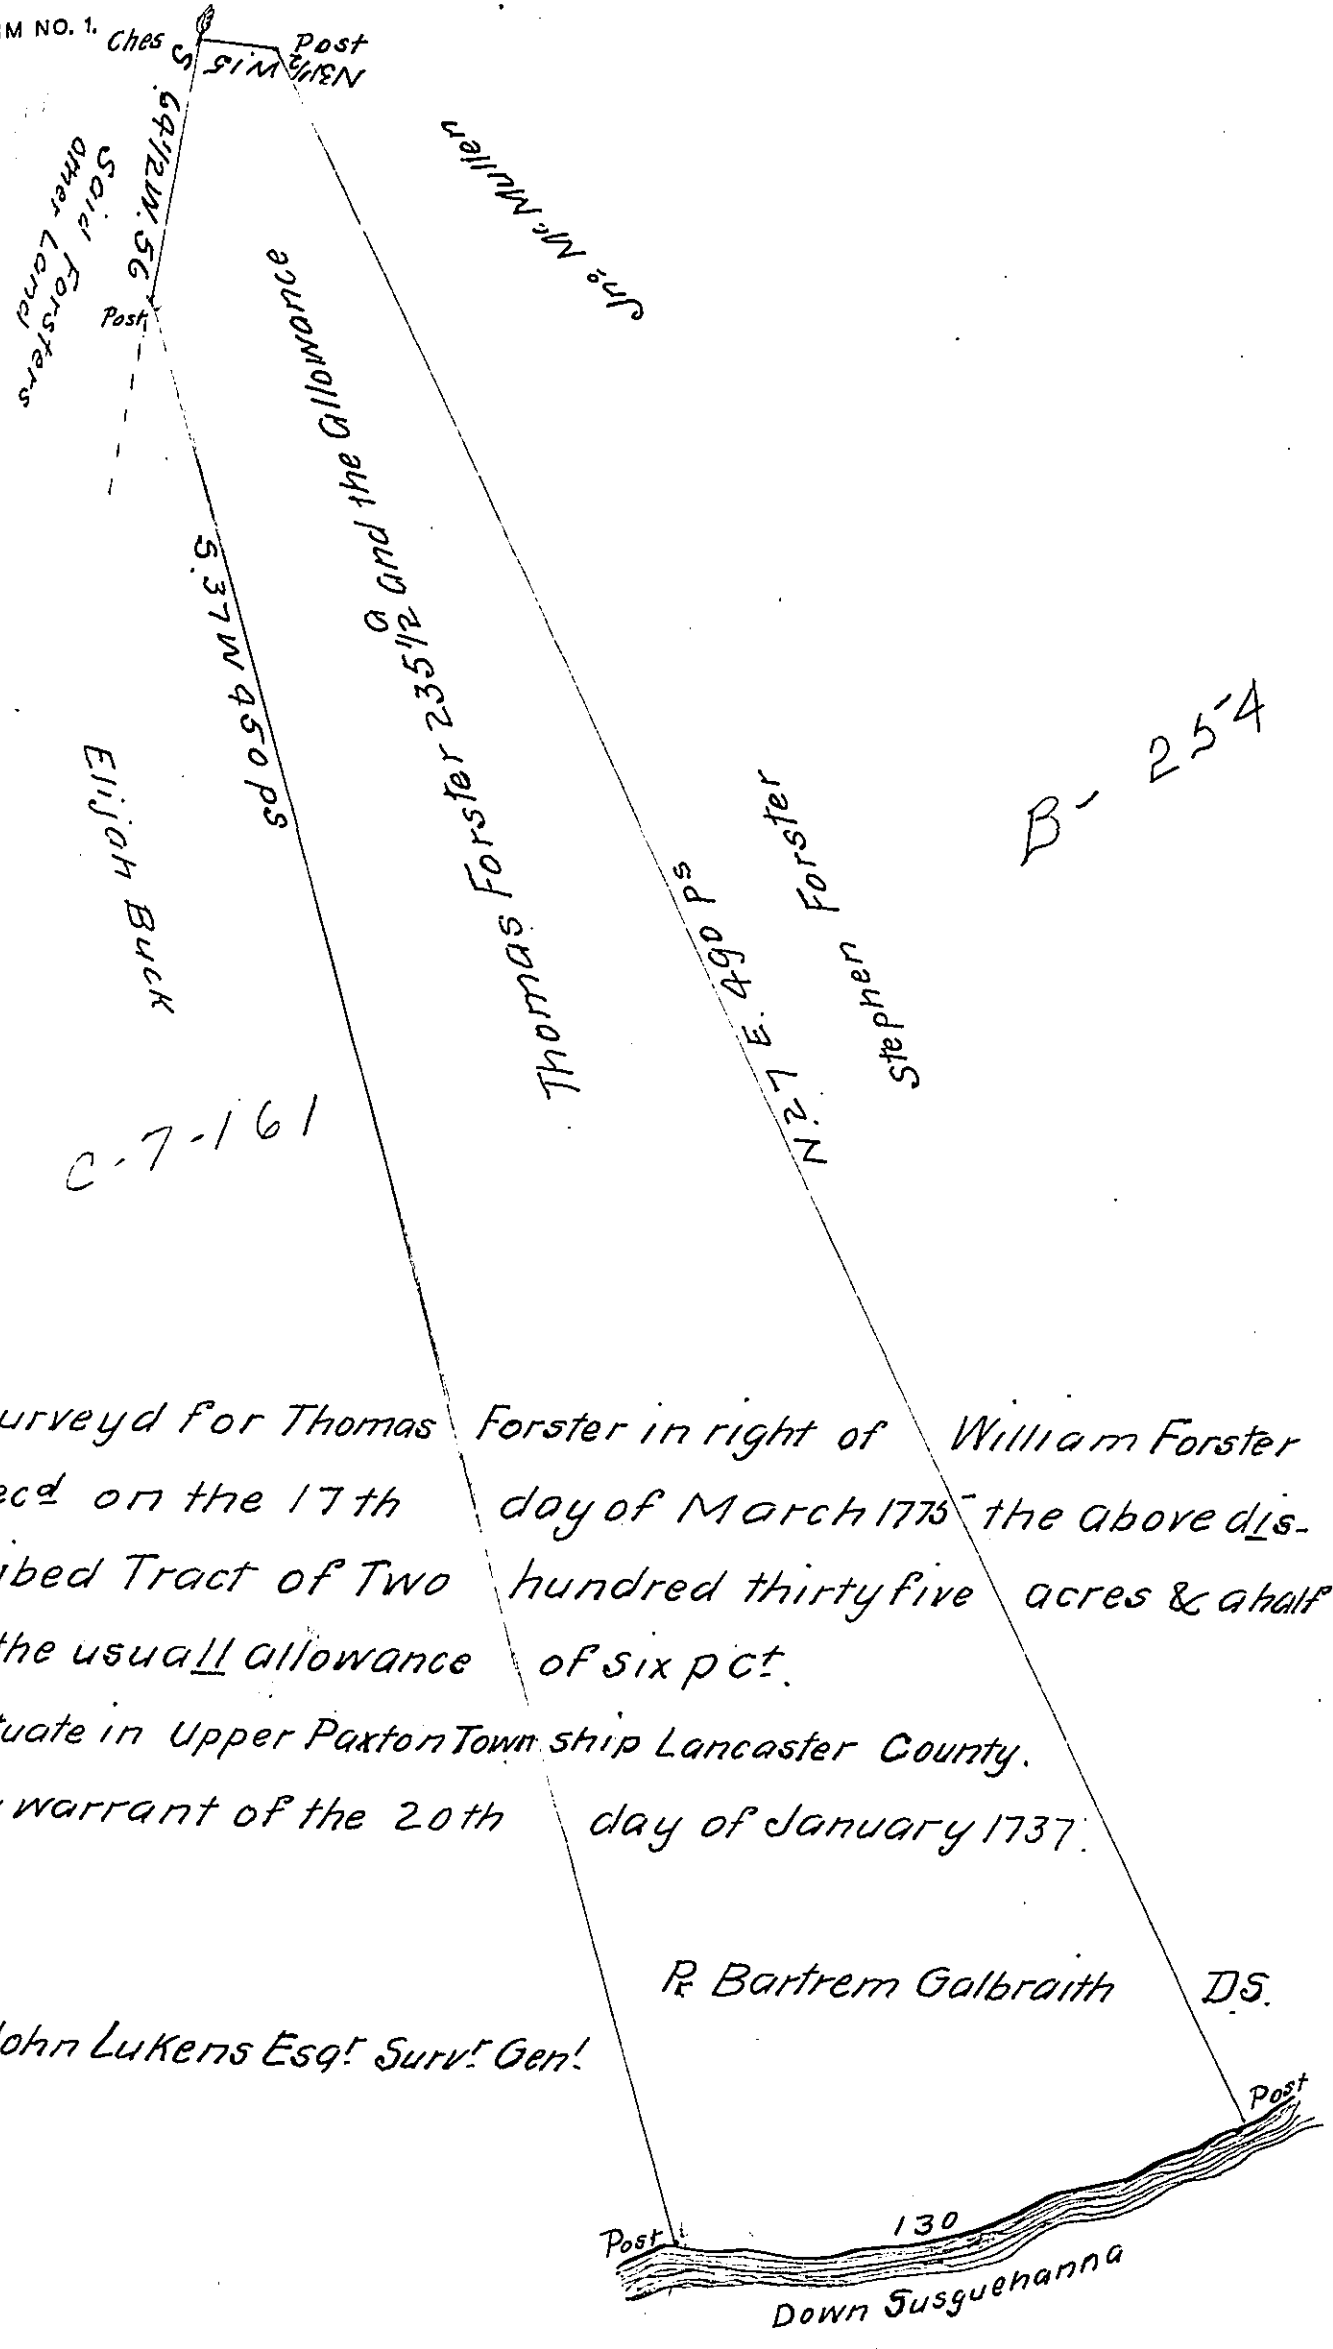 M NO. 1.
Ches
Post
N31½
W.15
S
64½W. 56
Said Forsters
other Land
Post
Jnº McMullen
Thomas Forster 235½ a and the allowance
S. 37 W 450 ps
Elijah Buck
N. 27 E. 490 ps
Stephen Forster
B- 254
C-7-161
urveyd for Thomas Forster in right of William Forster
ecd on the 17th day of March 1775 the above dis-
ibed Tract of Two hundred thirty five acres & a half
the usuall allowance of six p ct.
tuate in Upper Paxton Township Lancaster County.
warrant of the 20th day of January 1737.
Pr Bartrem Galbraith D.S.
John Lukens Esqr Survr Genl
Post
Post
130
Down Susquehanna